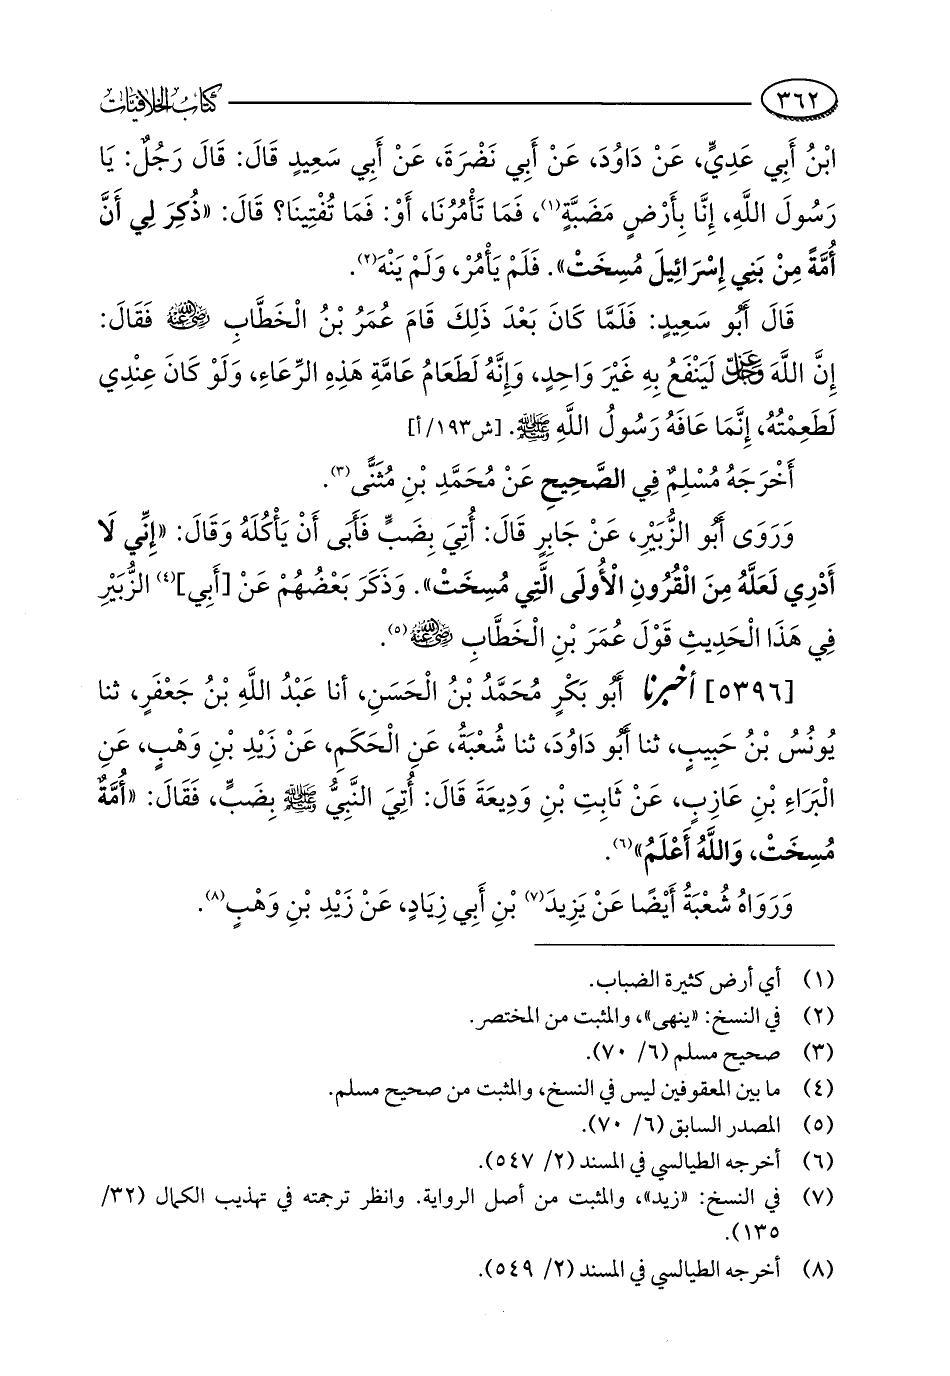 ٣٦٢ كتاب الخلافيات
ابْنُ أَبِي عَدِيٍّ، عَنْ دَاوُدَ، عَنْ أَبِي نَضْرَةَ، عَنْ أَبِي سَعِيدٍ قَالَ: قَالَ رَجُلٌ: يَا
رَسُولَ اللَّهِ، إِنَّا بِأَرْضٍ مَضَبَّةٍ(١)، فَمَا تَأْمُرُنَا، أَوْ: فَمَا تُفْتِينَا؟ قَالَ: «ذُكِرَ لِي أَنَّ
أُمَّةً مِنْ بَنِي إِسْرَائِيلَ مُسِخَتْ». فَلَمْ يَأْمُرْ، وَلَمْ يَنْهَ(٢).
قَالَ أَبُو سَعِيدٍ: فَلَمَّا كَانَ بَعْدَ ذَلِكَ قَامَ عُمَرُ بْنُ الْخَطَّابِ رضي الله عنه فَقَالَ:
إِنَّ اللَّهَ عز وجل لَيَنْفَعُ بِهِ غَيْرَ وَاحِدٍ، وَإِنَّهُ لَطَعَامُ عَامَّةِ هَذِهِ الرِّعَاءِ، وَلَوْ كَانَ عِنْدِي
لَطَعِمْتُهُ، إِنَّمَا عَافَهُ رَسُولُ اللَّهِ ﷺ. [ش١٩٣/أ]
أَخْرَجَهُ مُسْلِمٌ فِي الصَّحِيحِ عَنْ مُحَمَّدِ بْنِ مُثَنًّى(٣).
وَرَوَى أَبُو الزُّبَيْرِ، عَنْ جَابِرٍ قَالَ: أُتِيَ بِضَبٍّ فَأَبَى أَنْ يَأْكُلَهُ وَقَالَ: «إِنِّي لَا
أَدْرِي لَعَلَّهُ مِنَ الْقُرُونِ الْأُولَى الَّتِي مُسِخَتْ». وَذَكَرَ بَعْضُهُمْ عَنْ [أَبِي](٤) الزُّبَيْرِ
فِي هَذَا الْحَدِيثِ قَوْلَ عُمَرَ بْنِ الْخَطَّابِ رضي الله عنه(٥).
[٥٣٩٦] أخبرنا أَبُو بَكْرٍ مُحَمَّدُ بْنُ الْحَسَنِ، أنا عَبْدُ اللَّهِ بْنُ جَعْفَرٍ، ثنا
يُونُسُ بْنُ حَبِيبٍ، ثنا أَبُو دَاوُدَ، ثنا شُعْبَةُ، عَنِ الْحَكَمِ، عَنْ زَيْدِ بْنِ وَهْبٍ، عَنِ
الْبَرَاءِ بْنِ عَازِبٍ، عَنْ ثَابِتِ بْنِ وَدِيعَةَ قَالَ: أُتِيَ النَّبِيُّ ﷺ بِضَبٍّ، فَقَالَ: «أُمَّةٌ
مُسِخَتْ، وَاللَّهُ أَعْلَمُ»(٦).
وَرَوَاهُ شُعْبَةُ أَيْضًا عَنْ يَزِيدَ(٧) بْنِ أَبِي زِيَادٍ، عَنْ زَيْدِ بْنِ وَهْبٍ(٨).
(١) أي أرض كثيرة الضباب.
(٢) في النسخ: «ينهى»، والمثبت من المختصر.
(٣) صحيح مسلم (٦/ ٧٠).
(٤) ما بين المعقوفين ليس في النسخ، والمثبت من صحيح مسلم.
(٥) المصدر السابق (٦/ ٧٠).
(٦) أخرجه الطيالسي في المسند (٢/ ٥٤٧).
(٧) في النسخ: «زيد»، والمثبت من أصل الرواية. وانظر ترجمته في تهذيب الكمال (٣٢/
١٣٥).
(٨) أخرجه الطيالسي في المسند (٢/ ٥٤٩).